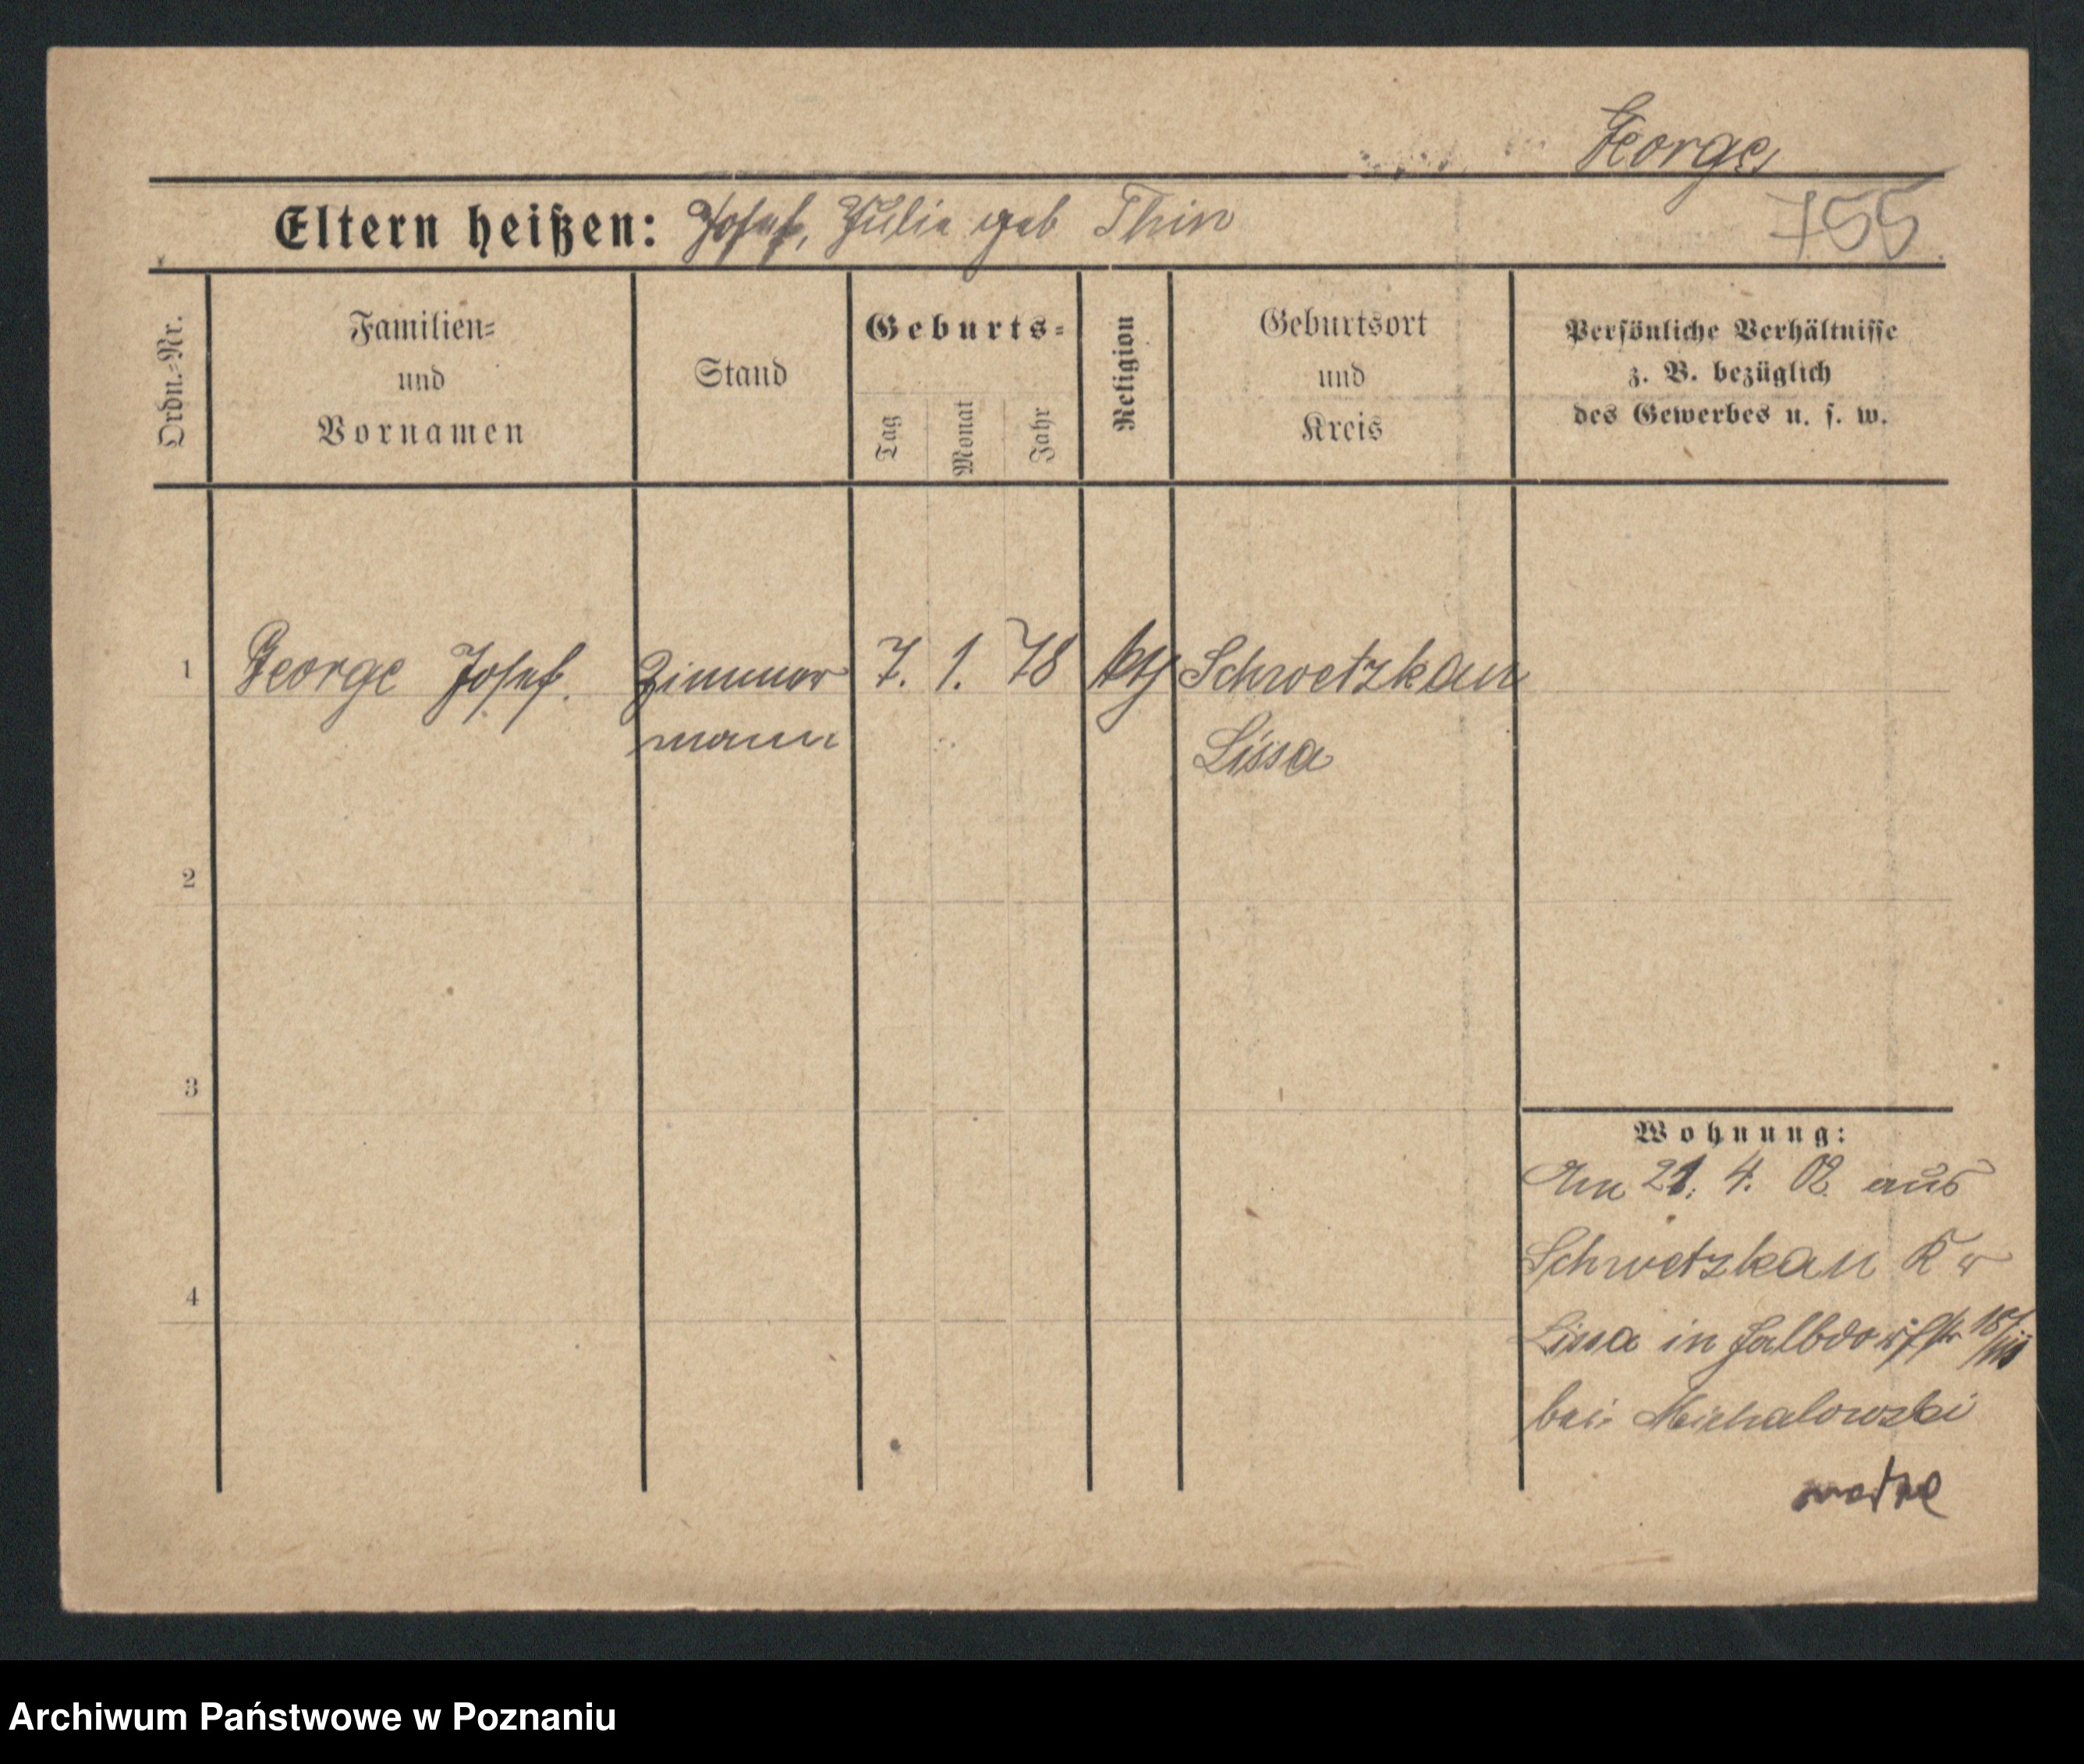 George
Eltern heißen: Josef, Julie geb Thin
755
Ordn.-Nr.
Familien-
und
Vornamen
Stand
Geburts-
Tag
Monat
Jahr
Religion
Geburtsort
und
Kreis
Persönliche Verhältnisse
z. B. bezüglich
des Gewerbes u. s. w.
1 George Josef. Zimmer 7. 1. 78 kth Schwetzkau
mann Lissa
2
3
4
Wohnung:
Am 21. 4. 02. aus
Schwetzkau Kr
Lissa in halbdorfstr 18/
bei Michalowski
Archiwum Państwowe w Poznaniu